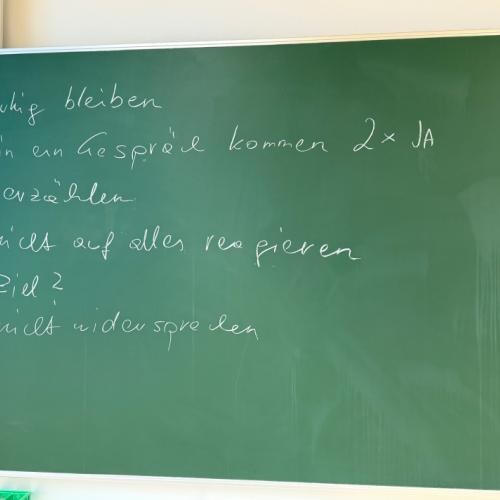 uhig bleiben
in ein Gespräch kommen 2x JA
erzählen
nicht auf alles reagieren
Ziel?
nicht widersprechen